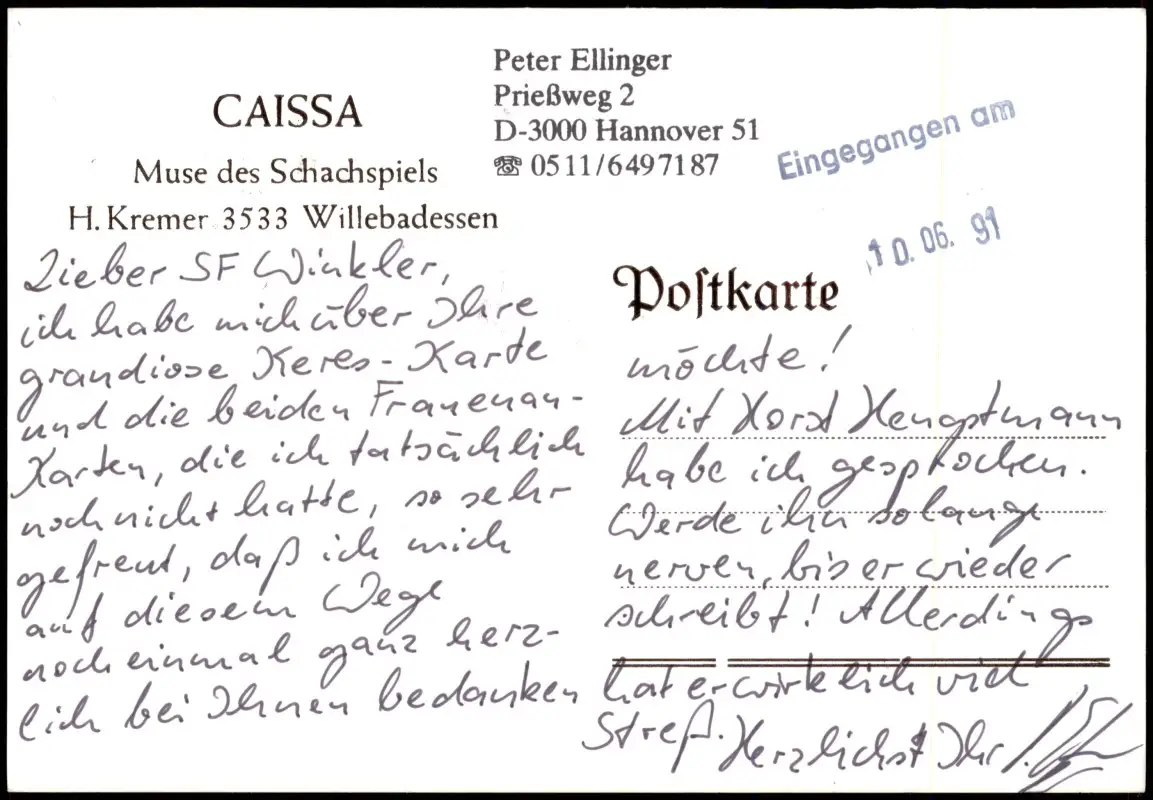 CAISSA
Muse des Schachspiels
H. Kremer 3533 Willebadessen
Peter Ellinger
Prießweg 2
D-3000 Hannover 51
☏ 0511/6497187
Eingegangen am
10. 06. 91
Postkarte
Lieber SF Winkler,
ich habe mich über Ihre
grandiose Keres-Karte
und die beiden Frauenau-
Karten, die ich tatsächlich
noch nicht hatte, so sehr
gefreut, daß ich mich
auf diesem Wege
noch einmal ganz herz-
lich bei Ihnen bedanken
möchte!
Mit Horst
habe ich gesprochen.
Werde ihn solange
nerven, bis er wieder
schreibt! Allerdings
hat er wirklich viel
Streß. Herzlichst Ihr